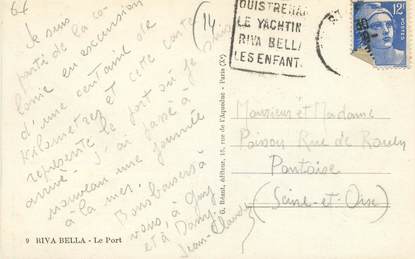 64
(14.
Je suis
parti de la co-
lonie en excursion
d'une centaine de
kilomètrez et cette carte
représente le port où je suis
arrivé. J'ai passé à
nouveau une journée
à la mer.
Bons baisers à
vous, à Guy
et à Dany.
Jean-Claude
OUISTREHAM
LE YACHTIN
RIVA BELLA
LES ENFANT.
12F
Monsieur et Madame
Poisson Rue de Rouen
Pontoise
(Seine-et-Oise)
G. Réant, éditeur, 15, rue de l'Aqueduc - Paris (Xe)
9 RIVA BELLA - Le Port